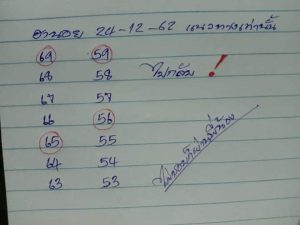 ฮานอย 24-12-62 แนวทางเท่านั้น
69 59
68 58 ไม่กลับ !
67 57
66 56
65 55
64 54
63 53